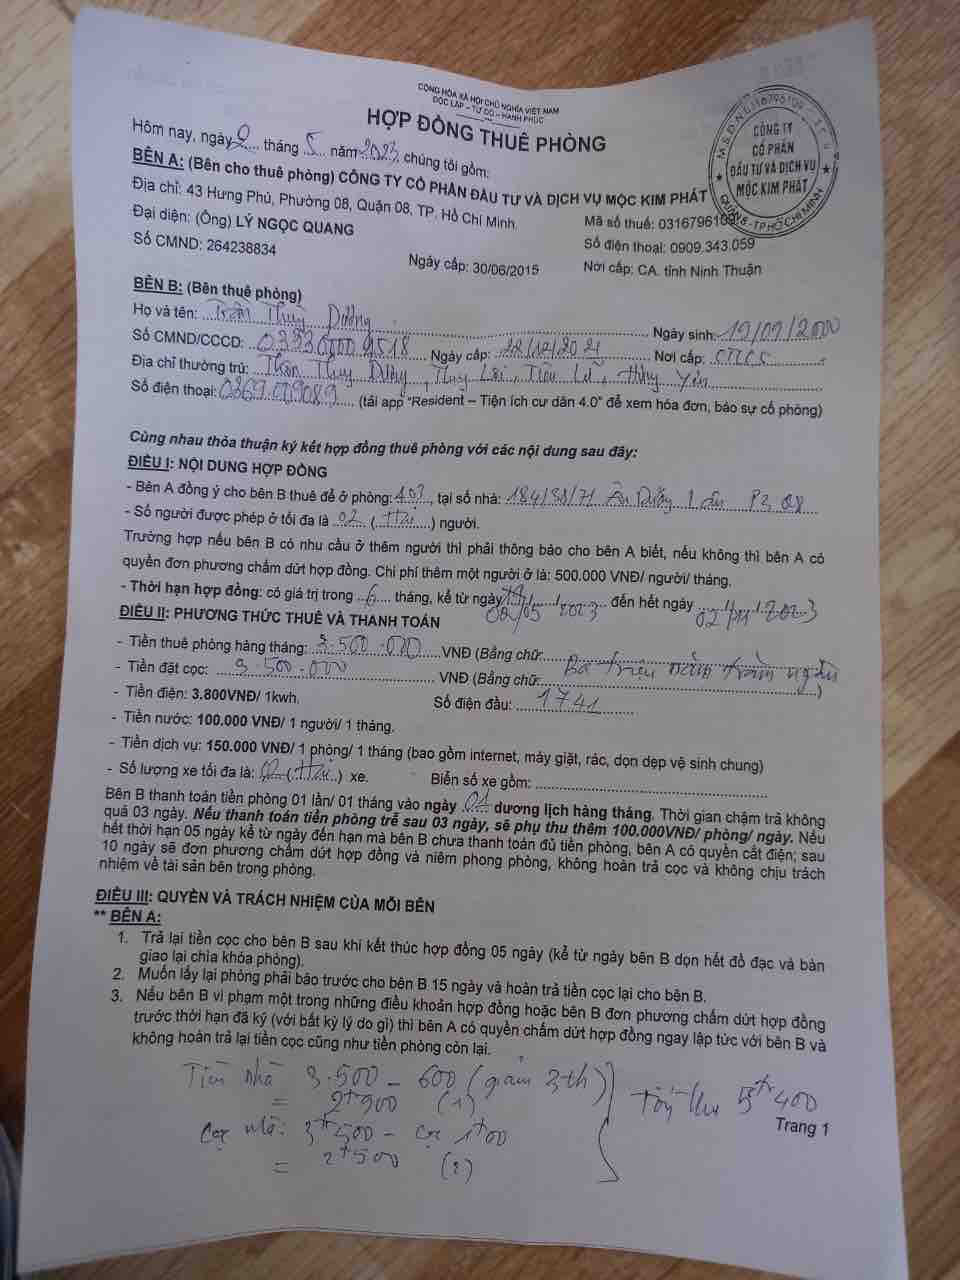 CỘNG HÒA XÃ HỘI CHỦ NGHĨA VIỆT NAM
ĐỘC LẬP – TỰ DO – HẠNH PHÚC
HỢP ĐỒNG THUÊ PHÒNG
M.S.D.N:0316796109
CÔNG TY
CỔ PHẦN
ĐẦU TƯ VÀ DỊCH VỤ
MỘC KIM PHÁT
QUẬN 8 - TP HỒ CHÍ MINH
Hôm nay, ngày 2 tháng 5 năm 2023, chúng tôi gồm:
BÊN A: (Bên cho thuê phòng) CÔNG TY CỔ PHẦN ĐẦU TƯ VÀ DỊCH VỤ MỘC KIM PHÁT
Địa chỉ: 43 Hưng Phú, Phường 08, Quận 08, TP. Hồ Chí Minh. Mã số thuế: 0316796109
Đại diện: (Ông) LÝ NGỌC QUANG Số điện thoại: 0909.343.059
Số CMND: 264238834 Ngày cấp: 30/06/2015 Nơi cấp: CA. tỉnh Ninh Thuận
BÊN B: (Bên thuê phòng)
Họ và tên: Trần Thuỳ Dương Ngày sinh: 19/09/2000
Số CMND/CCCD: Ngày cấp: Nơi cấp:
Địa chỉ thường trú: Thôn Thuỵ Dương, Thuỵ Lôi, Tiên Lữ, Hưng Yên
Số điện thoại: 0369.009089 (tải app “Resident – Tiện ích cư dân 4.0” để xem hóa đơn, báo sự cố phòng)
Cùng nhau thỏa thuận ký kết hợp đồng thuê phòng với các nội dung sau đây:
ĐIỀU I: NỘI DUNG HỢP ĐỒNG
- Bên A đồng ý cho bên B thuê để ở phòng: 403, tại số nhà: Âu Dương Lân P3 Q8
- Số người được phép ở tối đa là 02 (Hai) người.
Trường hợp nếu bên B có nhu cầu ở thêm người thì phải thông báo cho bên A biết, nếu không thì bên A có
quyền đơn phương chấm dứt hợp đồng. Chi phí thêm một người ở là: 500.000 VNĐ/ người/ tháng.
- Thời hạn hợp đồng: có giá trị trong 6 tháng, kể từ ngày 02/05/2023 đến hết ngày 02/11/2023
ĐIỀU II: PHƯƠNG THỨC THUÊ VÀ THANH TOÁN
- Tiền thuê phòng hàng tháng: 3.500.000 VNĐ (Bằng chữ: Ba triệu năm trăm ngàn
- Tiền đặt cọc: 3.500.000 VNĐ (Bằng chữ: )
- Tiền điện: 3.800VNĐ/ 1kwh. Số điện đầu: 1741
- Tiền nước: 100.000 VNĐ/ 1 người/ 1 tháng.
- Tiền dịch vụ: 150.000 VNĐ/ 1 phòng/ 1 tháng (bao gồm internet, máy giặt, rác, dọn dẹp vệ sinh chung)
- Số lượng xe tối đa là: 02 (Hai) xe. Biển số xe gồm:
Bên B thanh toán tiền phòng 01 lần/ 01 tháng vào ngày 01 dương lịch hàng tháng. Thời gian chậm trả không
quá 03 ngày. Nếu thanh toán tiền phòng trễ sau 03 ngày, sẽ phụ thu thêm 100.000VNĐ/ phòng/ ngày. Nếu
hết thời hạn 05 ngày kể từ ngày đến hạn mà bên B chưa thanh toán đủ tiền phòng, bên A có quyền cắt điện; sau
10 ngày sẽ đơn phương chấm dứt hợp đồng và niêm phong phòng, không hoàn trả cọc và không chịu trách
nhiệm về tài sản bên trong phòng.
ĐIỀU III: QUYỀN VÀ TRÁCH NHIỆM CỦA MỖI BÊN
** BÊN A:
1. Trả lại tiền cọc cho bên B sau khi kết thúc hợp đồng 05 ngày (kể từ ngày bên B dọn hết đồ đạc và bàn
giao lại chìa khóa phòng).
2. Muốn lấy lại phòng phải báo trước cho bên B 15 ngày và hoàn trả tiền cọc lại cho bên B.
3. Nếu bên B vi phạm một trong những điều khoản hợp đồng hoặc bên B đơn phương chấm dứt hợp đồng
trước thời hạn đã ký (với bất kỳ lý do gì) thì bên A có quyền chấm dứt hợp đồng ngay lập tức với bên B và
không hoàn trả lại tiền cọc cũng như tiền phòng còn lại.
Tiền nhà 3.500 – 600 (giảm 3th)
= 2tr900 (1)
Tổng thu 5tr400
Cọc nhà: 3tr500 – cọc 1tr00
= 2tr500 (2)
Trang 1